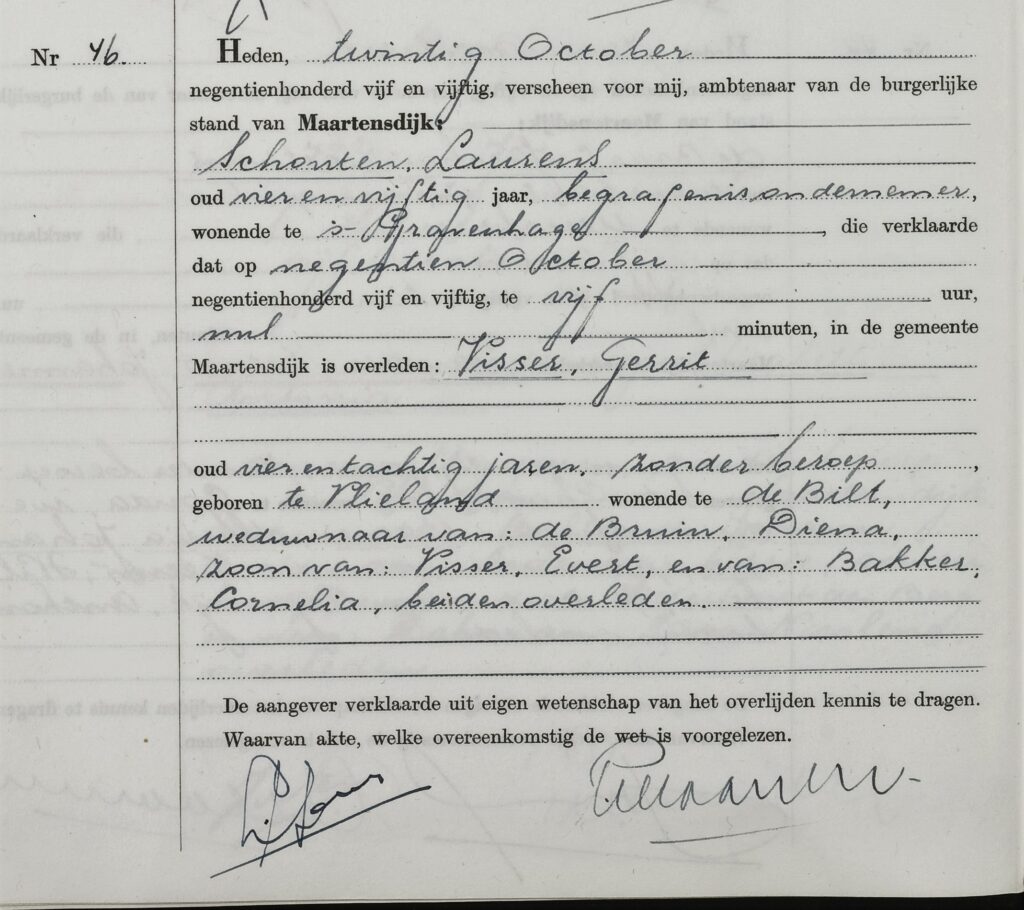 Nr 46.
Heden, twintig October
negentienhonderd vijf en vijftig, verscheen voor mij, ambtenaar van de burgerlijke
stand van Maartensdijk:
Schouten, Laurens
oud vier en vijftig jaar, begrafenisondernemer,
wonende te 's-Gravenhage, die verklaarde
dat op negentien October
negentienhonderd vijf en vijftig, te vijf uur,
nul minuten, in de gemeente
Maartensdijk is overleden: Visser, Gerrit
oud vier en tachtig jaren, zonder beroep,
geboren te Vlieland wonende te de Bilt,
weduwnaar van: de Bruin, Diena,
zoon van: Visser, Evert, en van: Bakker,
Cornelia, beiden overleden.
De aangever verklaarde uit eigen wetenschap van het overlijden kennis te dragen.
Waarvan akte, welke overeenkomstig de wet is voorgelezen.